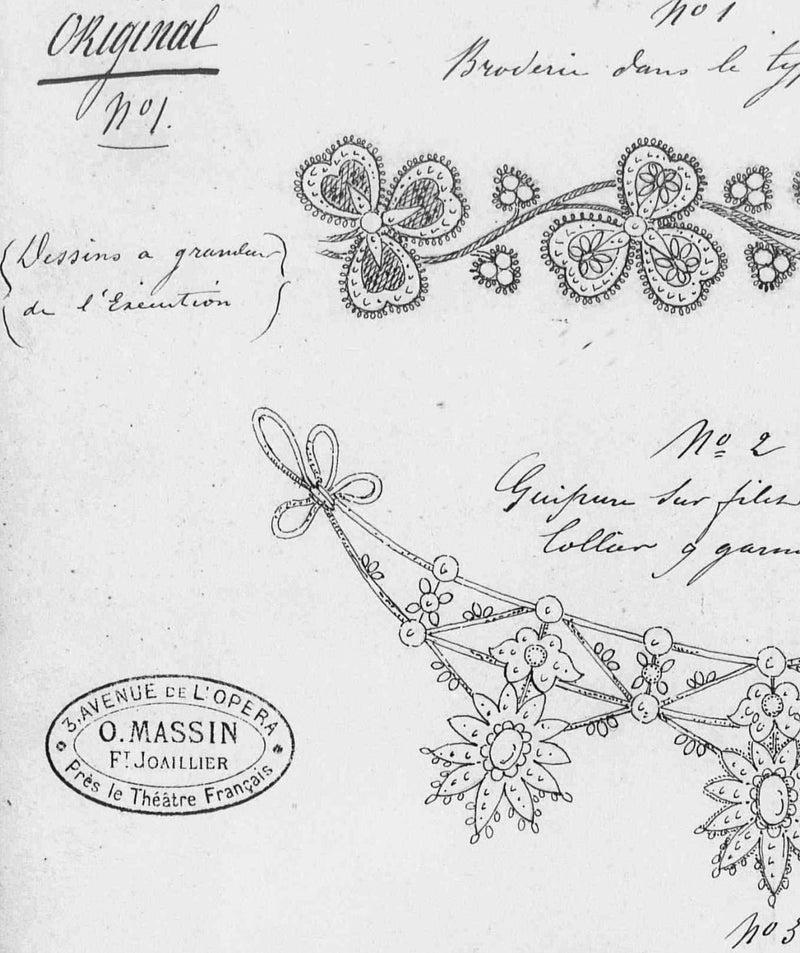 Original
No 1.
No 1
Broderie dans le ty
(Dessins a grandeur
de l'Exécution)
No 2
Guipure sur filet
Collier
3, AVENUE DE L'OPÉRA
O. MASSIN
FT JOAILLIER
Près le Théâtre Français
No 3